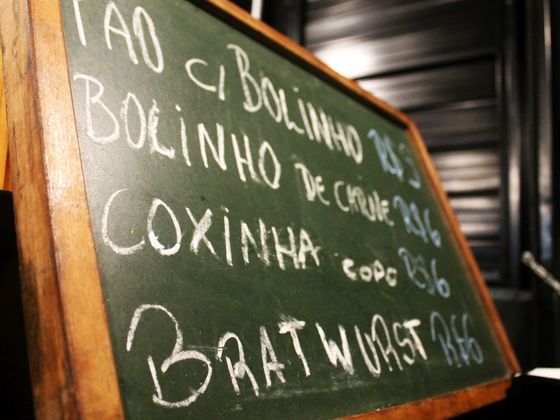 PAO C/ BOLINHO R$5
BOLINHO DE CARNE R$6
COXINHA COPO R$6
BRATWURST R$6